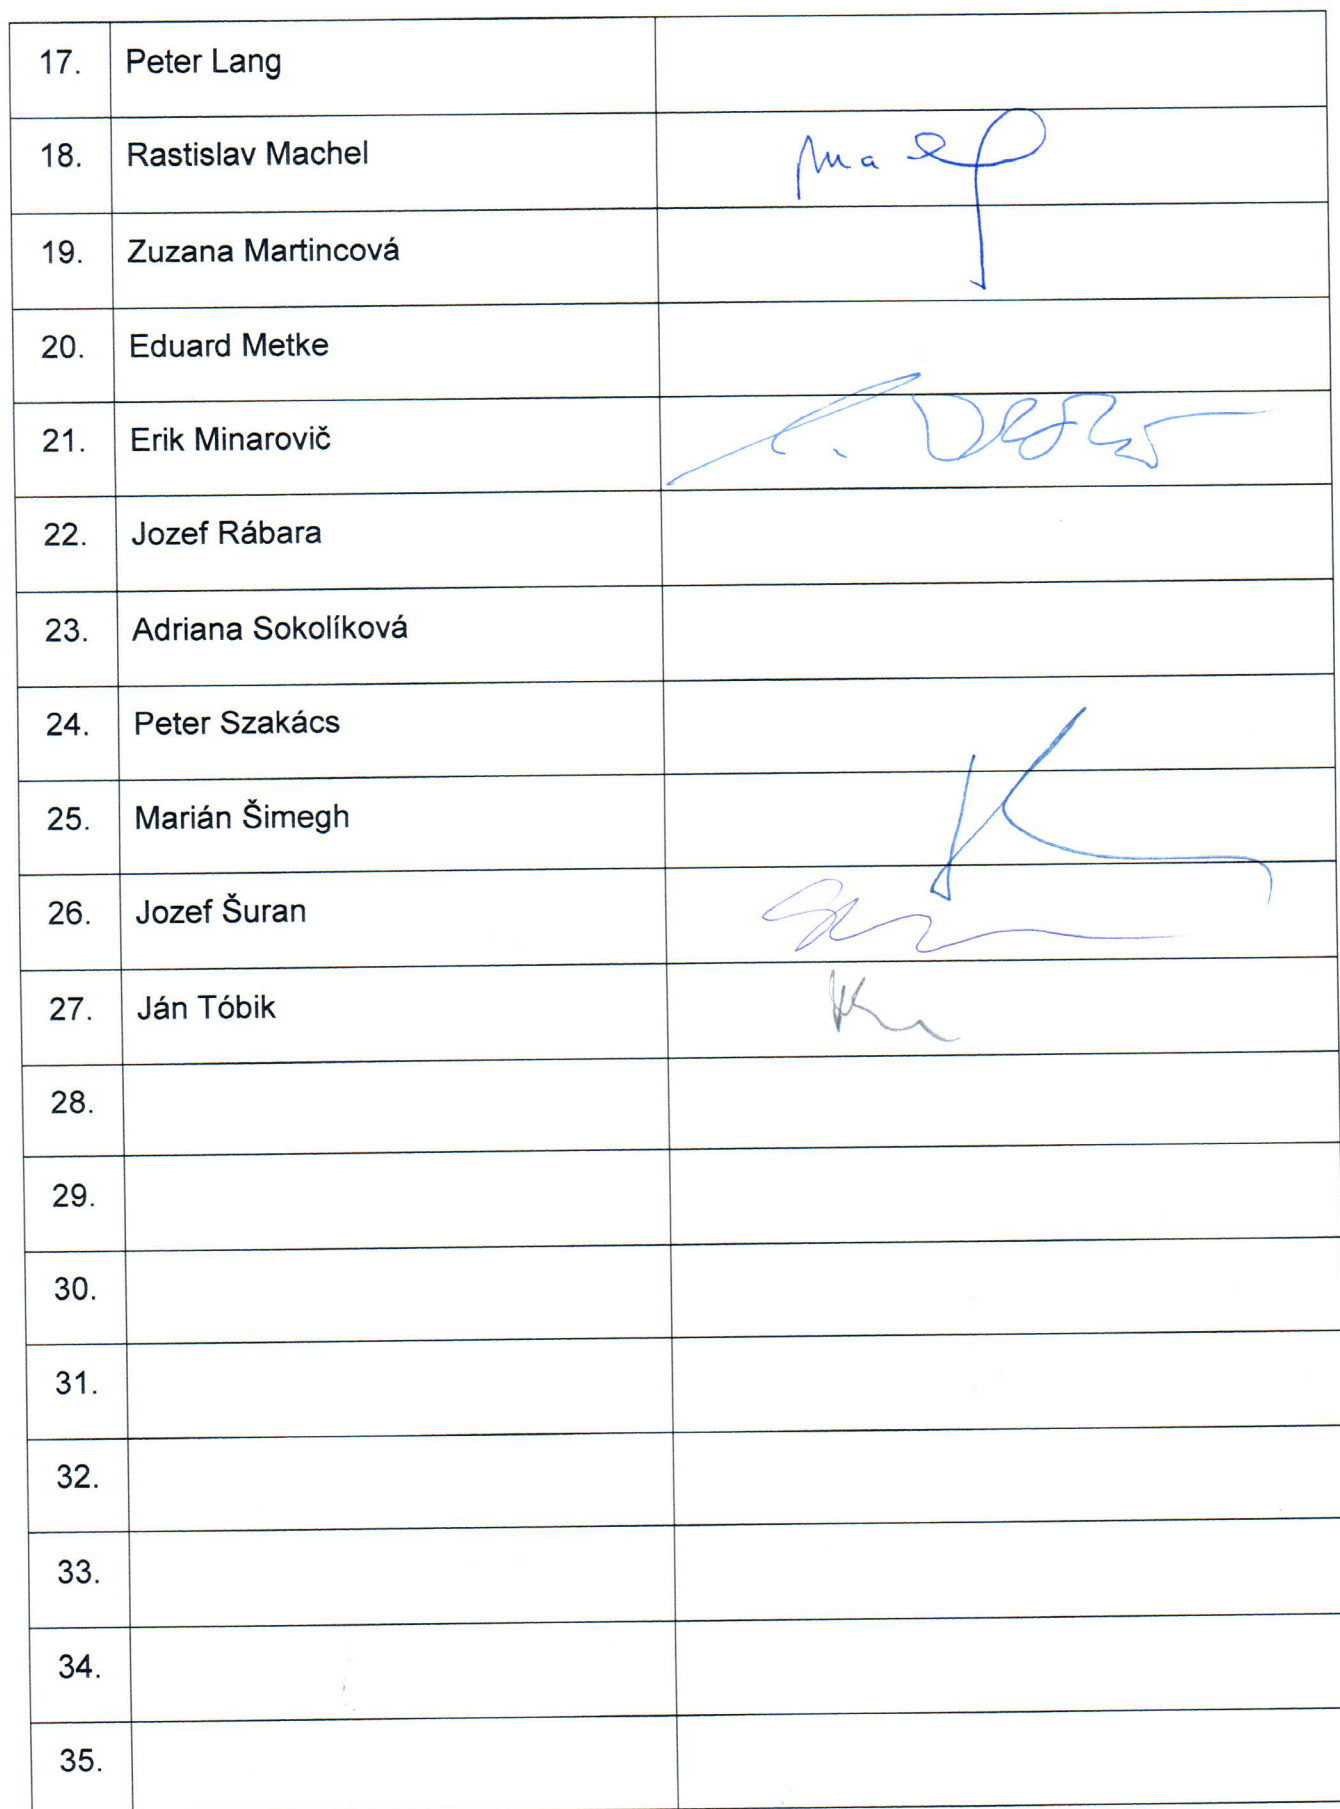 17. Peter Lang
18. Rastislav Machel
19. Zuzana Martincová
20. Eduard Metke
21. Erik Minarovič
22. Jozef Rábara
23. Adriana Sokolíková
24. Peter Szakács
25. Marián Šimegh
26. Jozef Šuran
27. Ján Tóbik
28.
29.
30.
31.
32.
33.
34.
35.